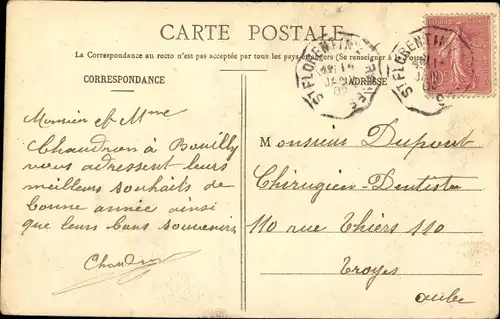 CARTE POSTALE
La Correspondance au recto n'est pas acceptée par tous les pays étrangers (Se renseigner à la Poste)
CORRESPONDANCE
ADRESSE
ST FLORENTIN
JAN
ST FLORENTIN
JAN
Monsieur et Mme
Chaudron à Bouilly
vous adressent leurs
meilleurs souhaits de
bonne année ainsi
que leurs bons souvenirs
Chaudron
Monsieur Dupont
Chirugien-Dentiste
110 rue Thiers 110
Troyes
Aube